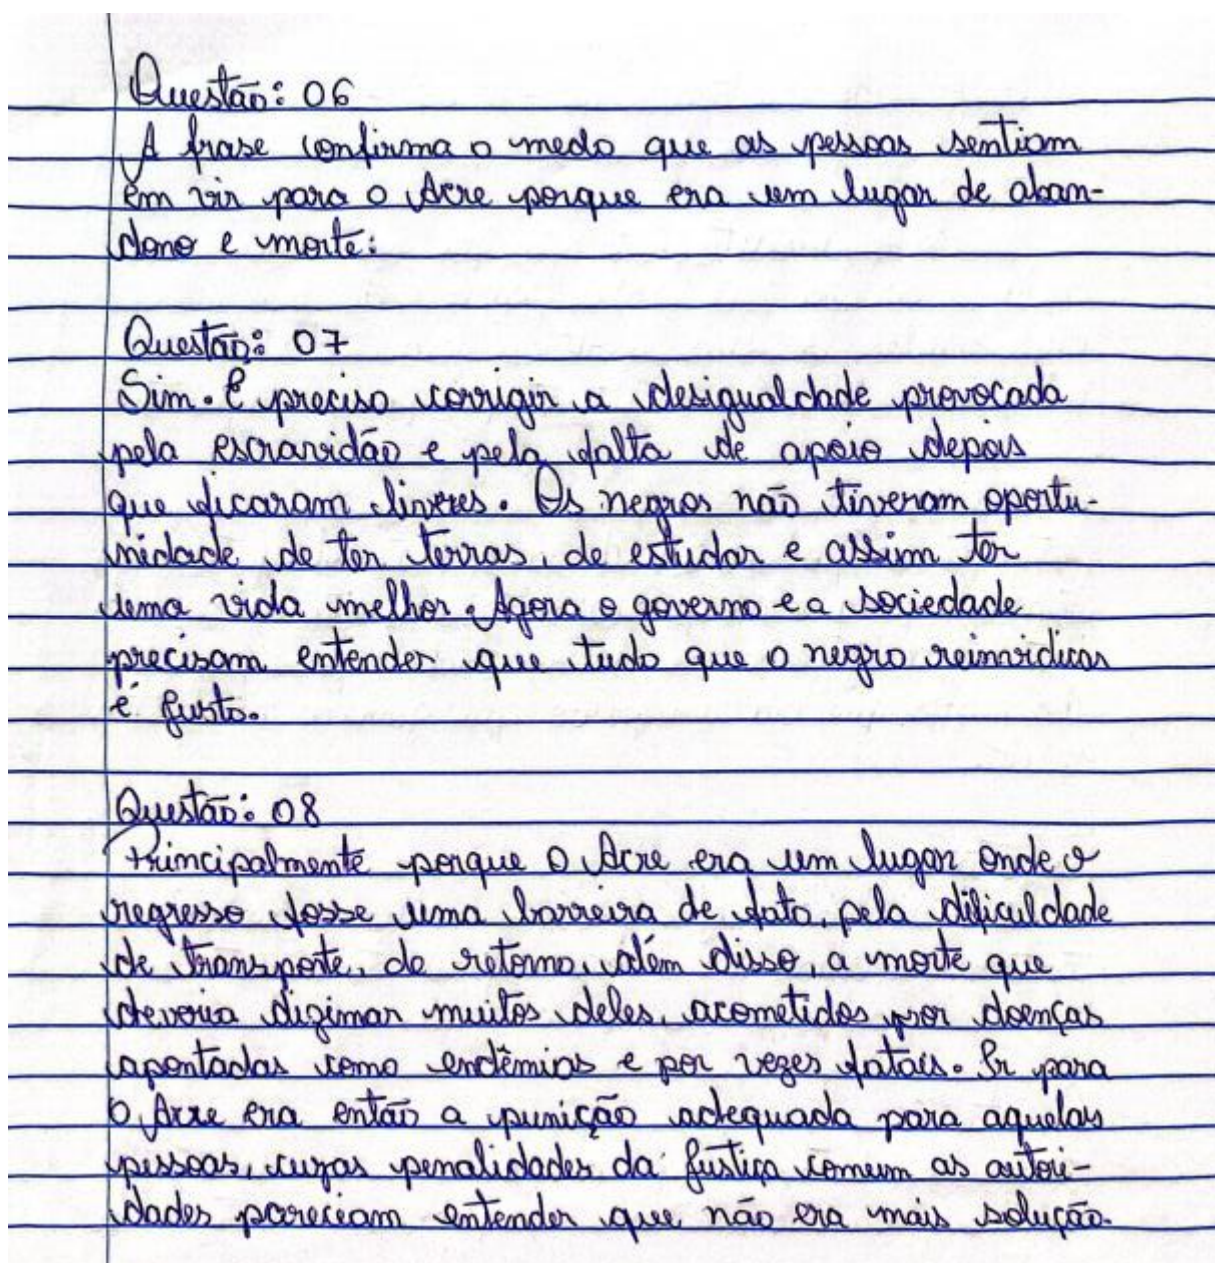 Questão: 06
A frase confirma o medo que as pessoas sentiam
em vir para o Acre porque era um lugar de aban-
dono e morte:
Questão: 07
Sim. É preciso corrigir a desigualdade provocada
pela escravidão e pela falta de apoio depois
que ficaram livres. Os negros não tiveram oportu-
nidade de ter terras, de estudar e assim ter
uma vida melhor. Agora o governo e a sociedade
precisam entender que tudo que o negro reinvidicar
é justo.
Questão: 08
Principalmente porque o Acre era um lugar onde o
regresso fosse uma barreira de fato, pela dificuldade
de transporte, de retorno, além disso, a morte que
deveria dizimar muitos deles, acometidos por doenças
apontadas como endêmias e por vezes fatais. Ir para
o Acre era então a punição adequada para aquelas
pessoas, cuzas penalidades da justiça comum as autori-
dades pareciam entender que não era mais solução.